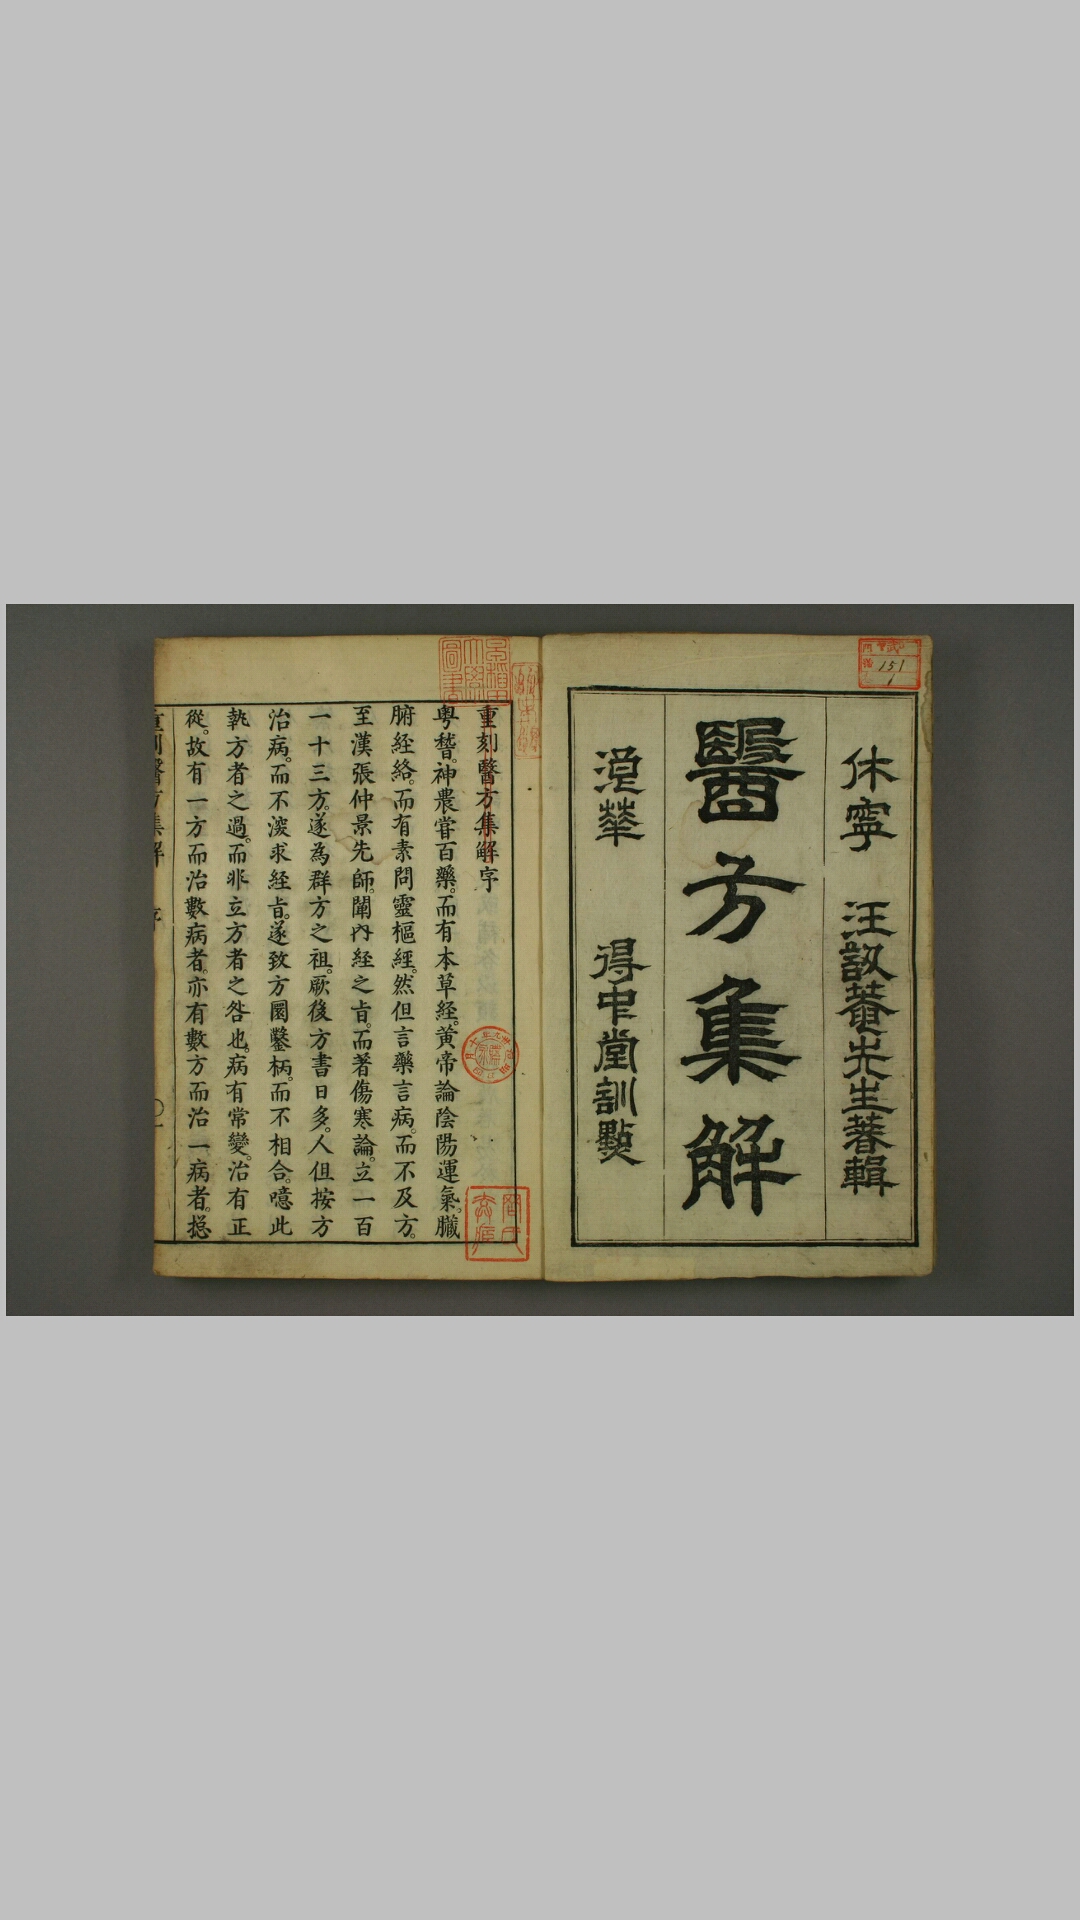 休寧 汪訒菴先生著輯
醫方集解
浪華 得中堂訓點
151
1
重刻醫方集解序
粤稽。神農嘗百藥。而有本草經。黃帝論陰陽運氣。臟
腑経絡。而有素問靈樞經。然但言藥言病。而不及方。
至漢張仲景先師。闡內経之旨。而著傷寒論。立一百
一十三方。遂為群方之祖。厥後方書日多。人但按方
治病。而不深求経旨。遂致方圜鑿枘。而不相合。噫此
執方者之過。而非立方者之咎也。病有常變。治有正
從。故有一方而治數病者。亦有數方而治一病者。捴
重刻醫方集解 序